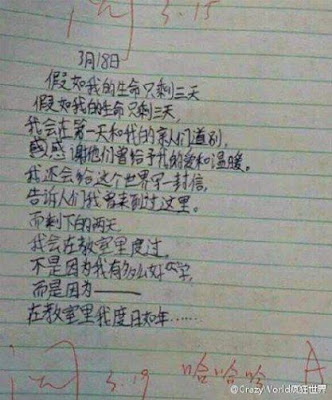 3.15
3月18日
假如我的生命只剩三天
假如我的生命只剩三天，
我会在第一天和我的亲人们道别，
感谢他们曾给予我的爱和温暖。
我还会给这个世界写一封信，
告诉人们我曾来到过这里。
而剩下的两天
我会在教室里度过，
不是因为我有多么好学，
而是因为——
在教室里我度日如年……
3.19 哈哈哈 A
@Crazy World疯狂世界